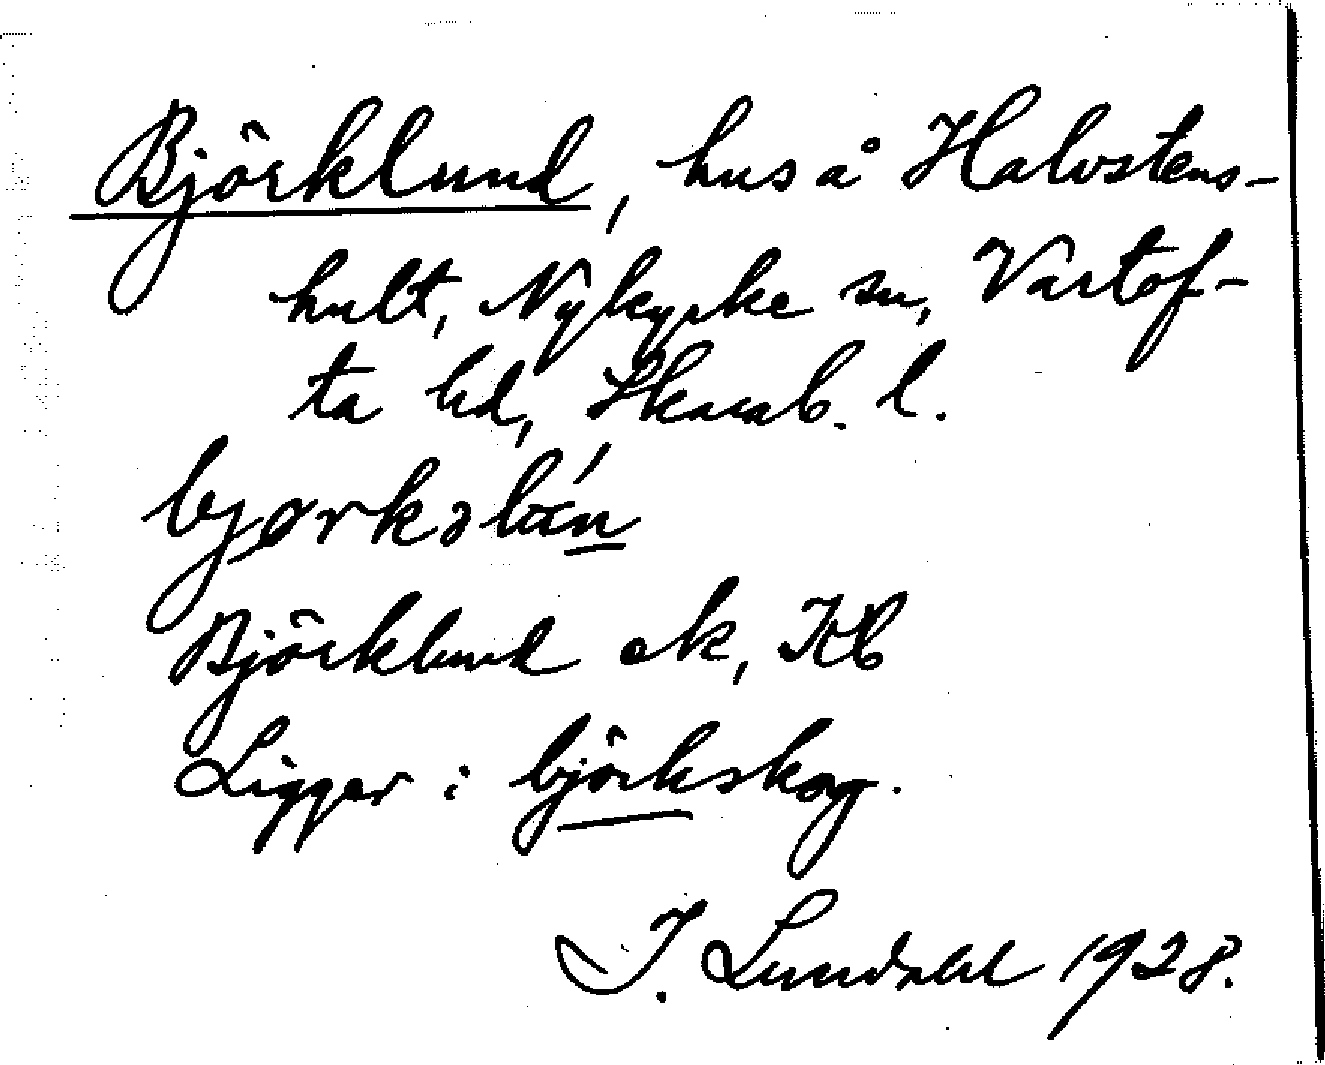 Björklund, hus å Halvstens-
hult, Nykyrke sn, Vartof-
ta hd, Skarab. l.
Björklund ek, Hb
Ligger i björkskog.
J. Lundahl 1928.